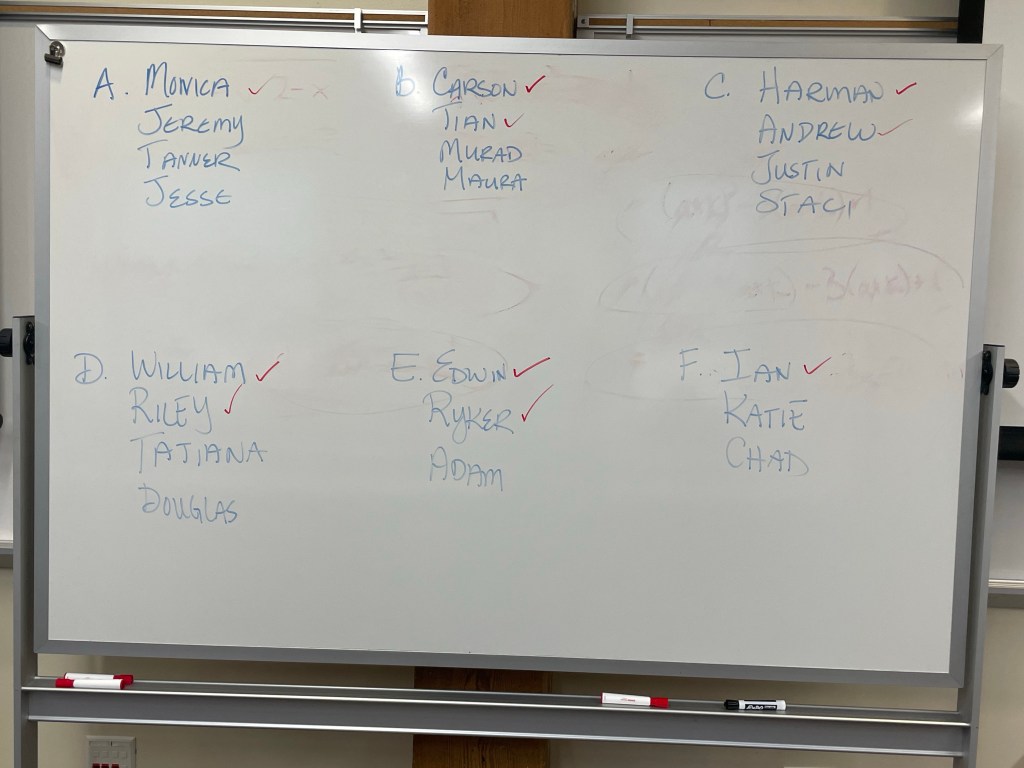 A. MONICA ✓
JEREMY
TANNER
JESSE
B. CARSON ✓
TIAN ✓
MURAD
MAURA
C. HARMAN ✓
ANDREW ✓
JUSTIN
STACI
D. WILLIAM ✓
RILEY ✓
TATIANA
DOUGLAS
E. EDWIN ✓
RYKER ✓
ADAM
F. IAN ✓
KATIE
CHAD